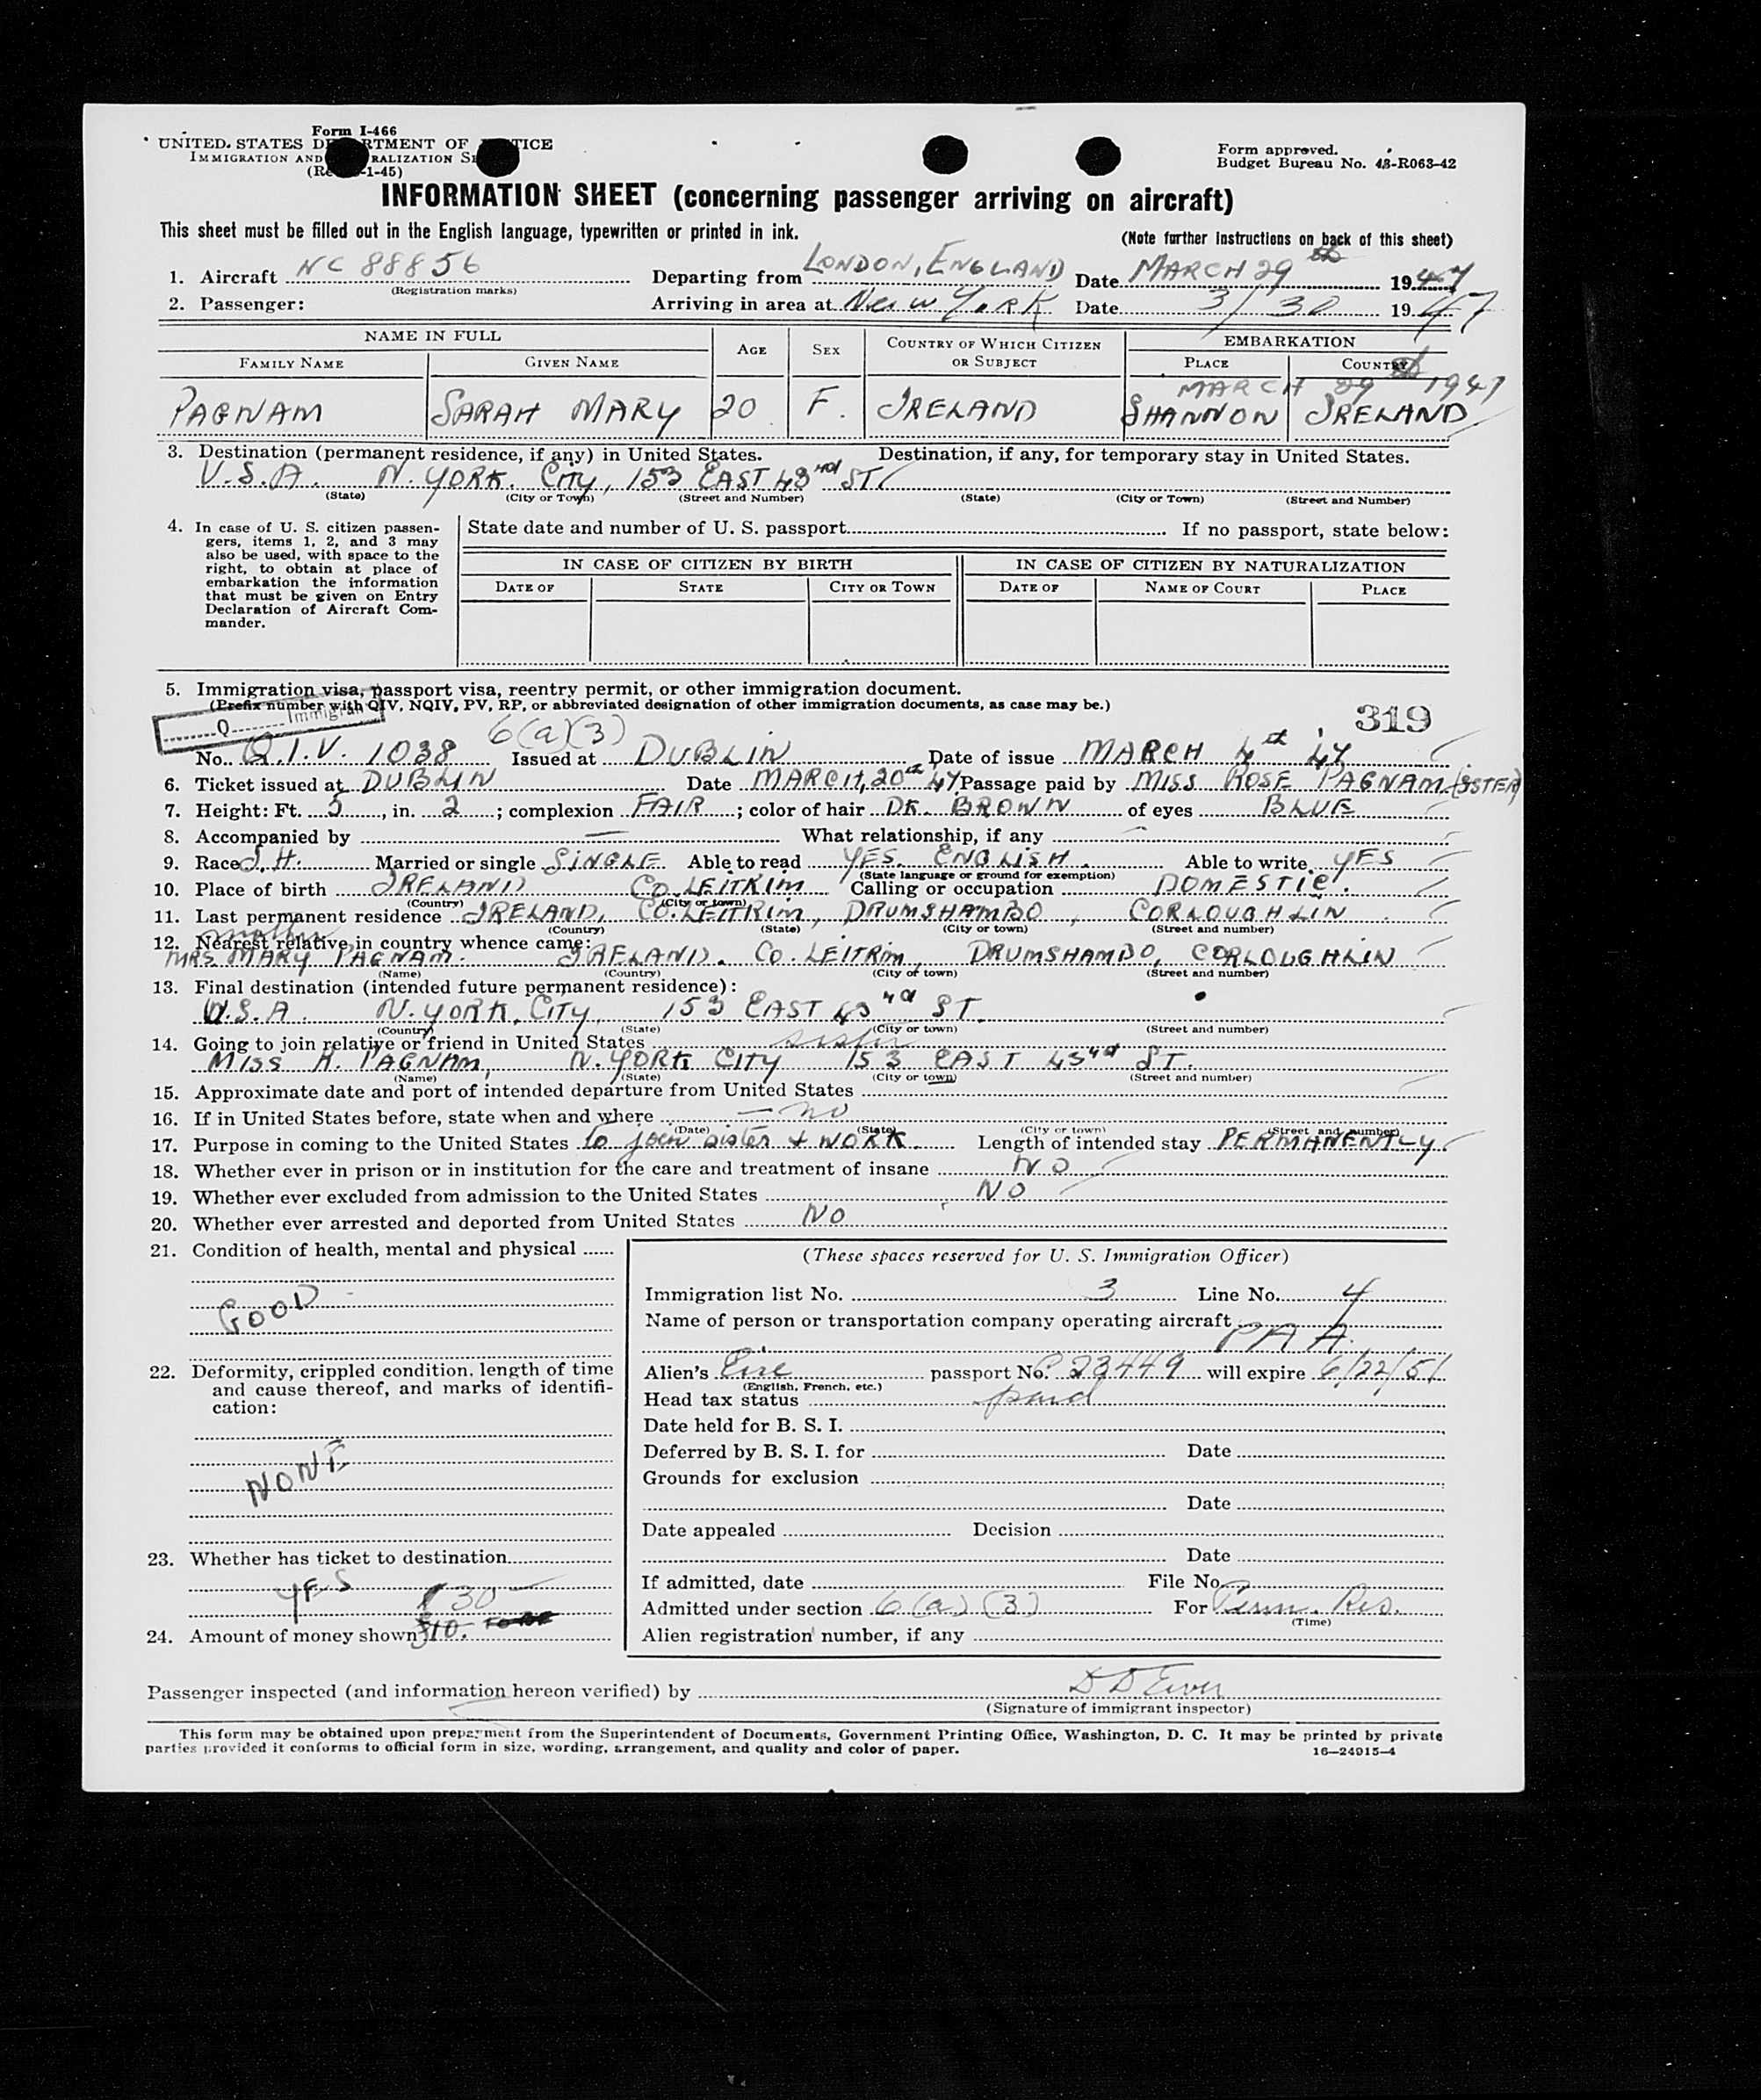 Form I-466
UNITED STATES DEPARTMENT OF JUSTICE
IMMIGRATION AND NATURALIZATION SE
(Re -1-45)
Form approved.
Budget Bureau No. 43-R063-42
INFORMATION SHEET (concerning passenger arriving on aircraft)
This sheet must be filled out in the English language, typewritten or printed in ink.
(Note further instructions on back of this sheet)
1. Aircraft NC 88856 Departing from LONDON, ENGLAND Date MARCH 29th 1947
(Registration marks)
2. Passenger: Arriving in area at New York Date 3/30 1947
NAME IN FULL AGE SEX COUNTRY OF WHICH CITIZEN OR SUBJECT EMBARKATION
FAMILY NAME GIVEN NAME PLACE COUNTRY
MARCH 29th 1947
PAGNAM SARAH MARY 20 F. IRELAND SHANNON IRELAND
3. Destination (permanent residence, if any) in United States. Destination, if any, for temporary stay in United States.
U.S.A. N. YORK. CITY, 153 EAST 43rd ST.
(State) (City or Town) (Street and Number) (State) (City or Town) (Street and Number)
4. In case of U. S. citizen passen-
gers, items 1, 2, and 3 may
also be used, with space to the
right, to obtain at place of
embarkation the information
that must be given on Entry
Declaration of Aircraft Com-
mander.
State date and number of U. S. passport If no passport, state below:
IN CASE OF CITIZEN BY BIRTH IN CASE OF CITIZEN BY NATURALIZATION
DATE OF STATE CITY OR TOWN DATE OF NAME OF COURT PLACE
5. Immigration visa, passport visa, reentry permit, or other immigration document.
(Prefix number with QIV, NQIV, PV, RP, or abbreviated designation of other immigration documents, as case may be.)
Q Immigrant
319
6(a)(3)
No. Q.I.V. 1038 Issued at DUBLIN Date of issue MARCH 4th '47
6. Ticket issued at DUBLIN Date MARCH, 20th '47 Passage paid by MISS ROSE PAGNAM (SISTER)
7. Height: Ft. 5, in. 2; complexion FAIR; color of hair DK. BROWN of eyes BLUE
8. Accompanied by — What relationship, if any —
9. Race I.H. Married or single SINGLE Able to read YES. ENGLISH. Able to write YES
(State language or ground for exemption)
10. Place of birth IRELAND CO. LEITRIM Calling or occupation DOMESTIC.
(Country) (City or town)
11. Last permanent residence IRELAND, CO. LEITRIM, DRUMSHAMBO, CORLOUGHLIN
(Country) (State) (City or town) (Street and number)
mother
12. Nearest relative in country whence came:
MRS. MARY PAGNAM. IRELAND. CO. LEITRIM, DRUMSHAMBO, CORLOUGHLIN
(Name) (Country) (City or town) (Street and number)
13. Final destination (intended future permanent residence):
U.S.A. N. YORK, CITY, 153 EAST 43rd ST.
(Country) (State) (City or town) (Street and number)
14. Going to join relative or friend in United States sister
MISS R. PAGNAM, N. YORK CITY 153 EAST 43rd ST.
(Name) (State) (City or town) (Street and number)
15. Approximate date and port of intended departure from United States
16. If in United States before, state when and where — no
(Date) (State) (City or town) (Street and number)
17. Purpose in coming to the United States to join sister & WORK Length of intended stay PERMANENTLY
18. Whether ever in prison or in institution for the care and treatment of insane NO
19. Whether ever excluded from admission to the United States NO
20. Whether ever arrested and deported from United States NO
21. Condition of health, mental and physical
GOOD
22. Deformity, crippled condition, length of time
and cause thereof, and marks of identifi-
cation:
NONE
23. Whether has ticket to destination
YES
$30
24. Amount of money shown $10.
(These spaces reserved for U. S. Immigration Officer)
Immigration list No. 3 Line No. 4
Name of person or transportation company operating aircraft
PAA
Alien's Eire passport No. 23449 will expire 6/22/51
(English, French, etc.)
Head tax status paid
Date held for B. S. I.
Deferred by B. S. I. for Date
Grounds for exclusion
Date
Date appealed Decision
Date
If admitted, date File No.
Admitted under section 6(a)(3) For Perm. Res.
(Time)
Alien registration number, if any
Passenger inspected (and information hereon verified) by
(Signature of immigrant inspector)
This form may be obtained upon prepayment from the Superintendent of Documents, Government Printing Office, Washington, D. C. It may be printed by private
parties provided it conforms to official form in size, wording, arrangement, and quality and color of paper.
16—24915-4